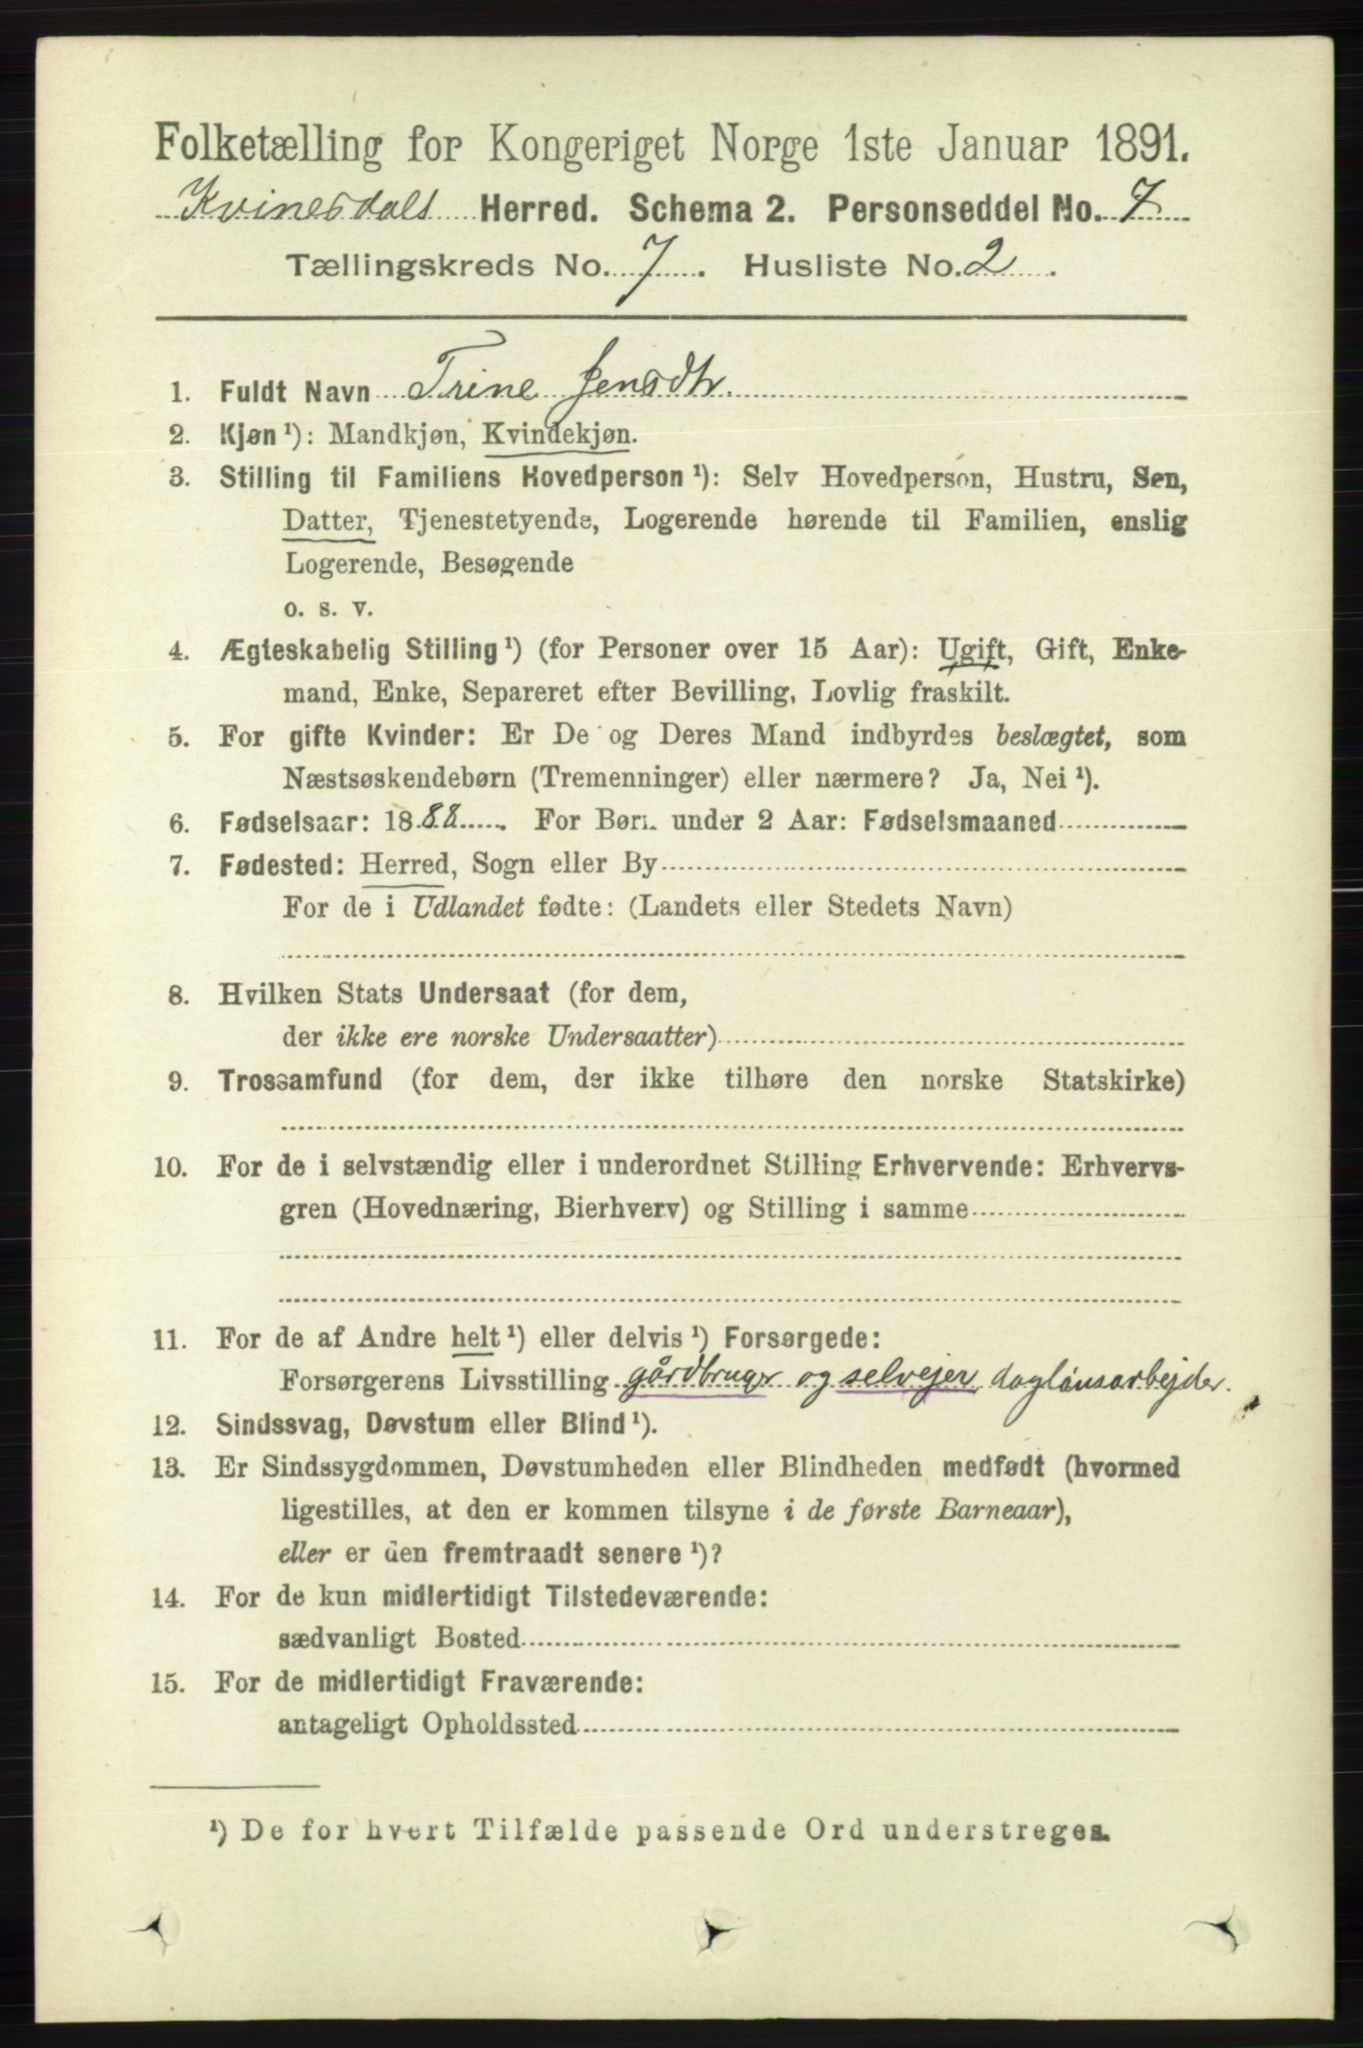 Folketælling for Kongeriget Norge 1ste Januar 1891.
Kvinesdals Herred. Schema 2. Personseddel No. 7
Tællingskreds No. 7. Husliste No. 2.
1. Fuldt Navn Trine Jensdtr.
2. Kjøn ¹): Mandkjøn, Kvindekjøn.
3. Stilling til Familiens Hovedperson ¹): Selv Hovedperson, Hustru, Søn,
Datter, Tjenestetyende, Logerende hørende til Familien, enslig
Logerende, Besøgende
o. s. v.
4. Ægteskabelig Stilling ¹) (for Personer over 15 Aar): Ugift, Gift, Enke-
mand, Enke, Separeret efter Bevilling, Lovlig fraskilt.
5. For gifte Kvinder: Er De og Deres Mand indbyrdes beslægtet, som
Næstsøskendebørn (Tremenninger) eller nærmere? Ja, Nei ¹).
6. Fødselsaar: 1888. For Børn under 2 Aar: Fødselsmaaned
7. Fødested: Herred, Sogn eller By
For de i Udlandet fødte: (Landets eller Stedets Navn)
8. Hvilken Stats Undersaat (for dem,
der ikke ere norske Undersaatter)
9. Trossamfund (for dem, der ikke tilhøre den norske Statskirke)
10. For de i selvstændig eller i underordnet Stilling Erhvervende: Erhvervs-
gren (Hovednæring, Bierhverv) og Stilling i samme
11. For de af Andre helt ¹) eller delvis ¹) Forsørgede:
Forsørgerens Livsstilling gårdbruger og selvejer, daglönsarbejder.
12. Sindssvag, Døvstum eller Blind ¹).
13. Er Sindssygdommen, Døvstumheden eller Blindheden medfødt (hvormed
ligestilles, at den er kommen tilsyne i de første Barneaar),
eller er den fremtraadt senere ¹)?
14. For de kun midlertidigt Tilstedeværende:
sædvanligt Bosted
15. For de midlertidigt Fraværende:
antageligt Opholdssted
¹) De for hvert Tilfælde passende Ord understreges.